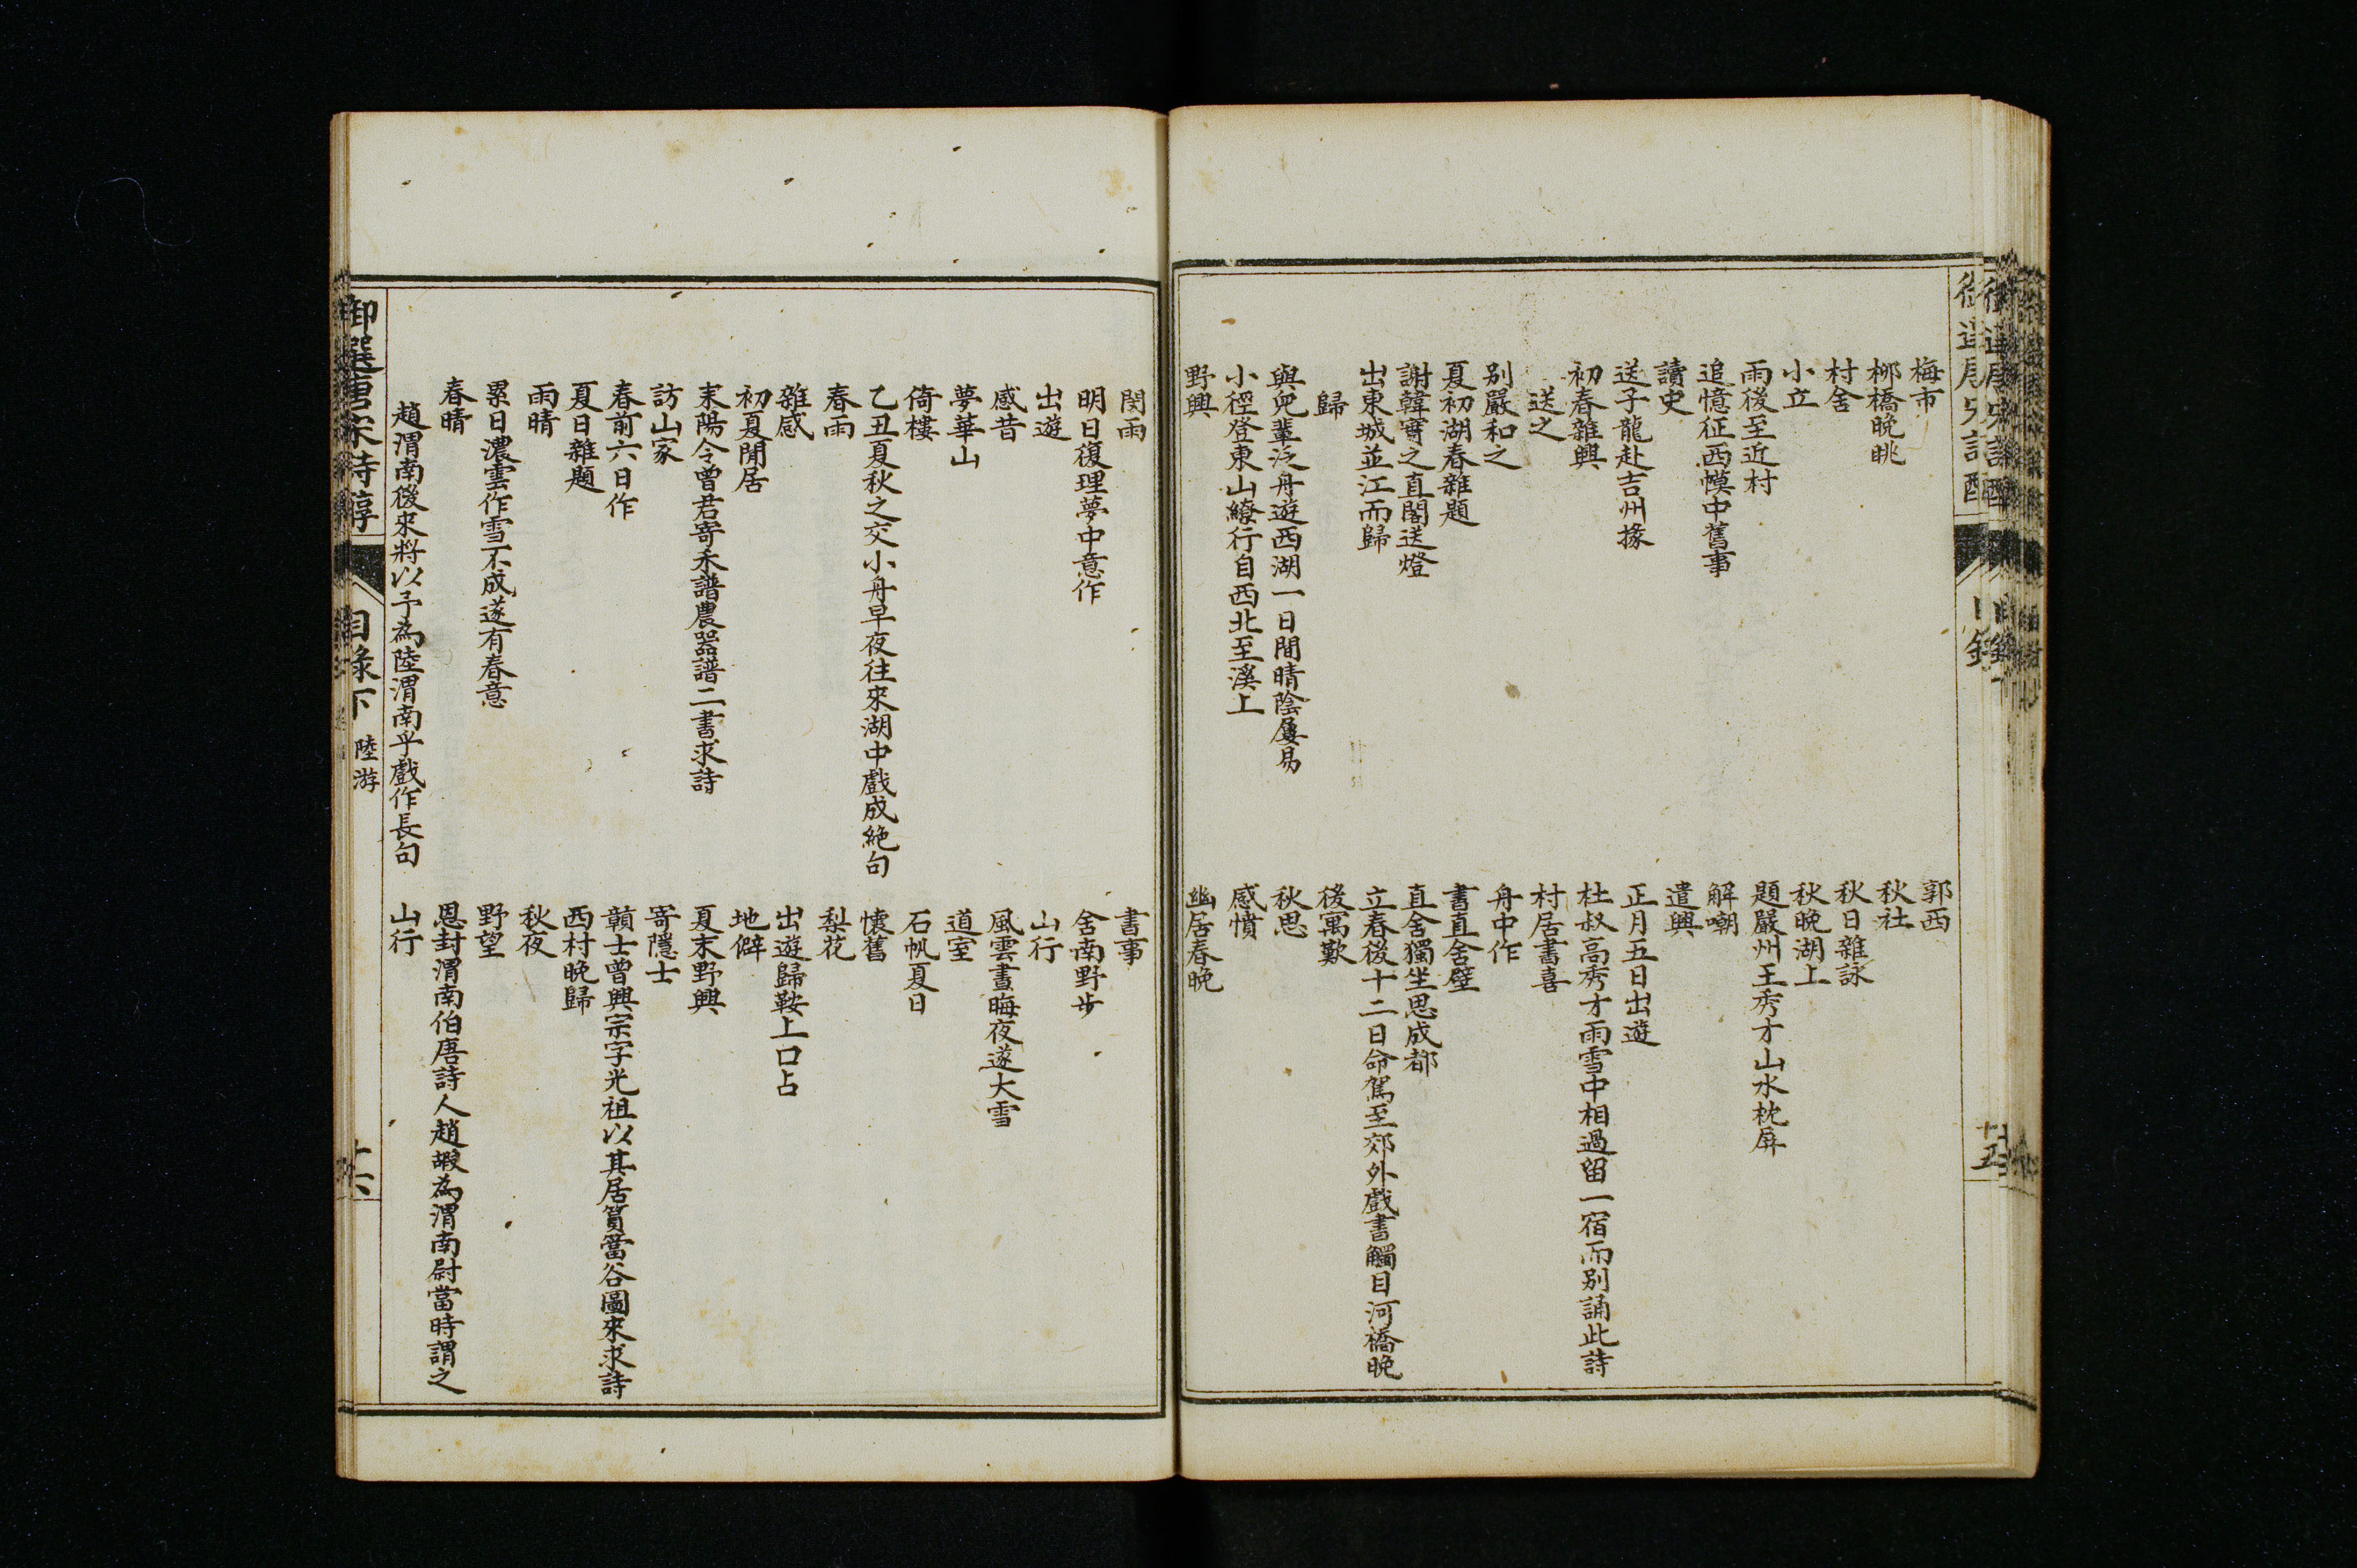 梅市
郭西
柳橋晚眺
秋社
村舍
秋日雜詠
小立
秋晚湖上
雨後至近村
題嚴州王秀才山水枕屏
追憶征西幙中舊事
解嘲
讀史
遣興
送子龍赴吉州掾
正月五日出遊
初春雜興
杜叔高秀才雨雪中相過留一宿而別誦此詩
送之
村居書喜
別嚴和之
舟中作
夏初湖春雜題
書直舍壁
謝韓寔之直閣送燈
直舍獨坐思成都
出東城並江而歸
立春後十二日命駕至郊外戲書觸目河橋晚
歸
後寓歎
與兒輩泛舟遊西湖一日間晴陰屢易
秋思
小徑登東山繚行自西北至溪上
感憤
野興
幽居春晚
閔雨
書事
明日復理夢中意作
舍南野步
出遊
山行
感昔
風雲晝晦夜遂大雪
夢華山
道室
倚樓
石帆夏日
乙丑夏秋之交小舟早夜往來湖中戲成絶句
懷舊
春雨
梨花
雜感
出遊歸鞍上口占
初夏閒居
地僻
耒陽令曾君寄禾譜農器譜二書求詩
夏末野興
訪山家
寄隱士
春前六日作
贛士曾興宗字光祖以其居篔簹谷圖來求詩
夏日雜題
西村晚歸
雨晴
秋夜
累日濃雲作雪不成遂有春意
野望
春晴
恩封渭南伯唐詩人趙嘏為渭南尉當時謂之
趙渭南後來將以予為陸渭南乎戲作長句
山行
御選唐宋詩醇
目錄下
陸游